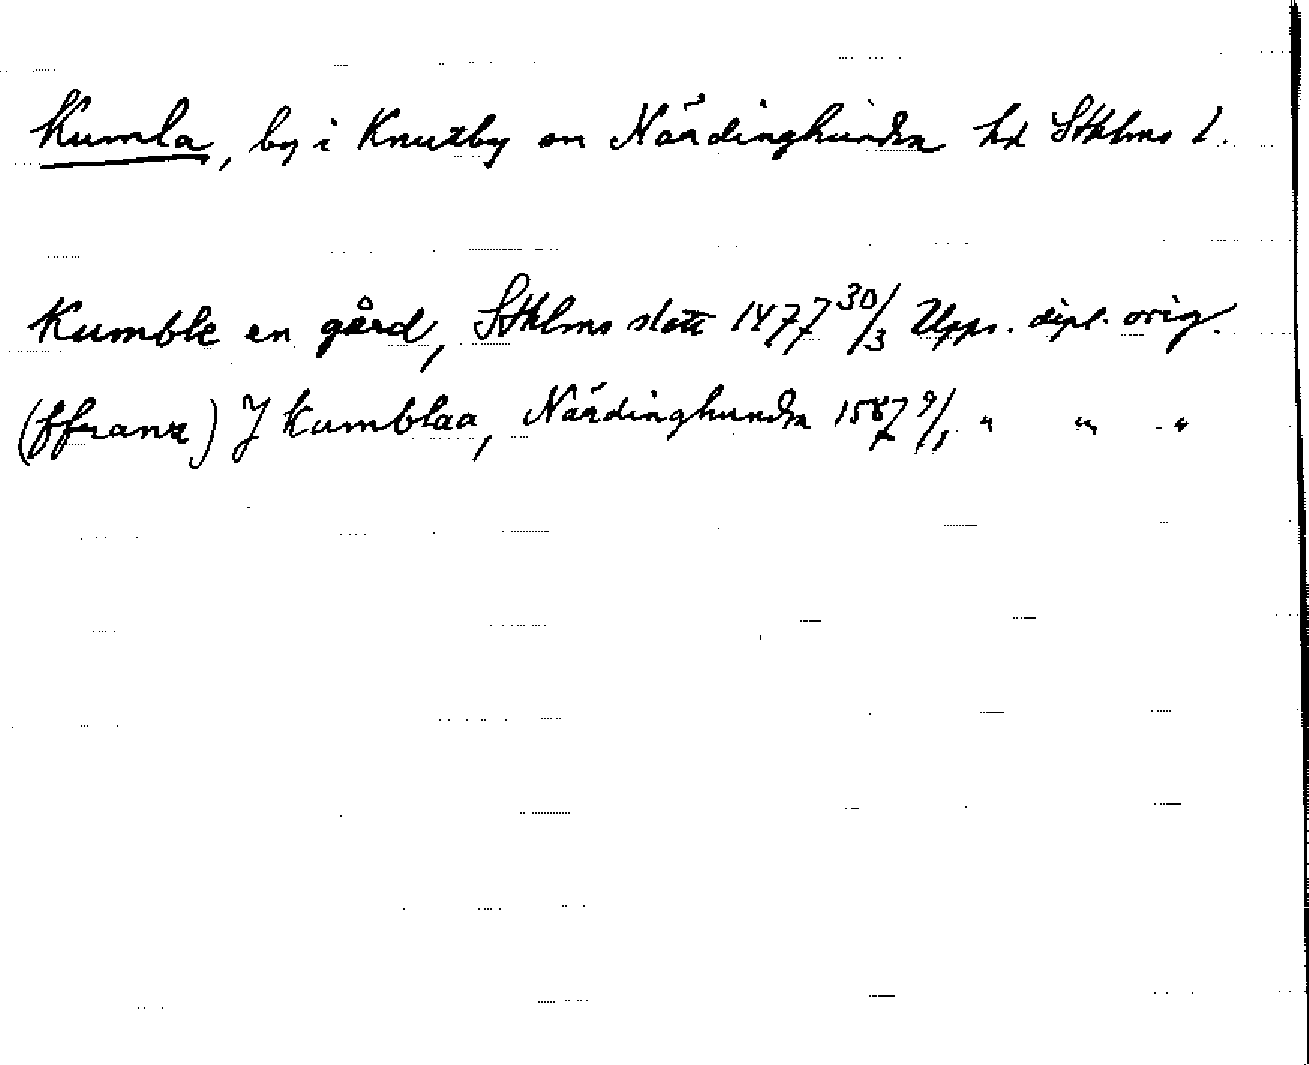 Kumla, by i Knutby sn Närdinghundra hd Sthlms l.
Kumble en gård, Sthlms slott 1477 30/3 Upps. dipl. orig.
(ffranz) J Kumblaa, Närdinghundra 1587 9/1 " " "